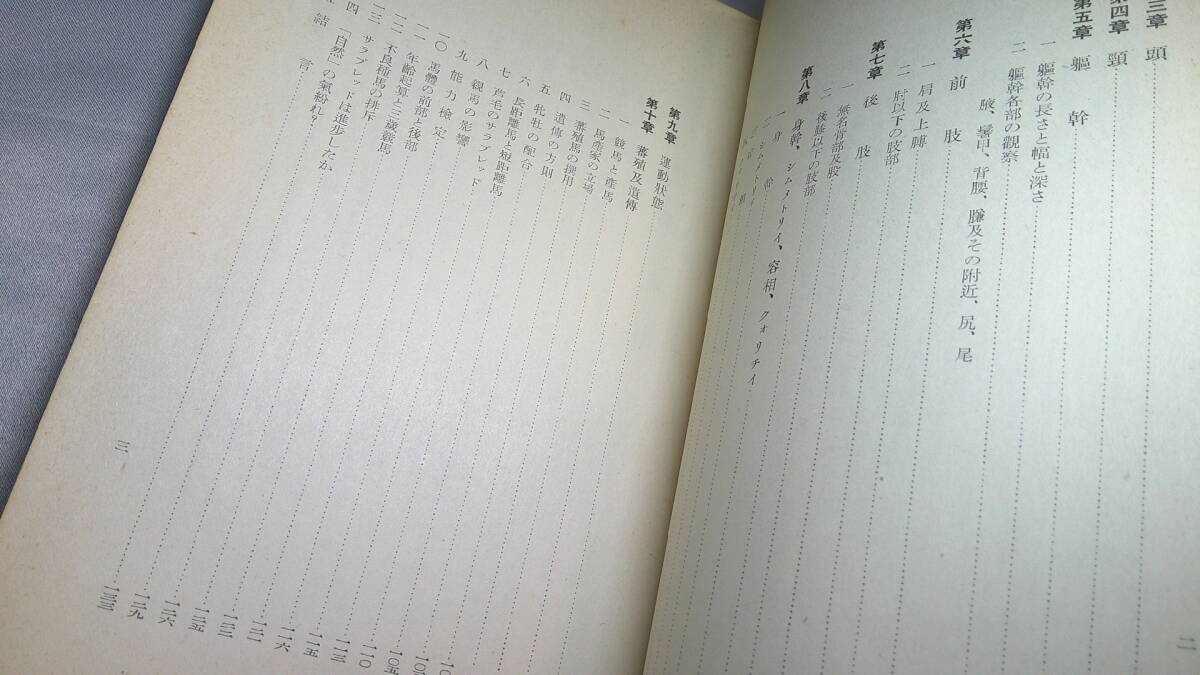 三章 頭
第四章 頸
第五章 軀幹
一 軀幹の長さと幅と深さ
二 軀幹各部の觀察
腋、鬐甲、背腰、臁及その附近、尻、尾
第六章 前肢
一 肩及上膊
二 肘以下の肢部
第七章 後肢
一 無名骨部及股
二 後膝以下の肢部
第八章 身幹、シムメトリイ、容相、クォリチイ
一 身幹
二 シムメトリイ
二
第九章 運動狀態
第十章 蕃殖及遺傳
一 競馬と產馬
二 馬產家の立場
三 蕃殖馬の撰用
四 遺傳の方則
五 牝牡の配合
六 長距離馬と短距離馬
七 芦毛のサラブレッド
八 親馬の影響
九 能力檢定
一〇 馬體の前部と後部
一一 年齡起算と三歲競馬
一二 不良種馬の排斥
一三、サラブレッドは進步したか
四 「自然」の氣紛れ?
結言
一〇五
一一〇
一一三
一一五
一一六
一二一
一二三
一二五
一二六
一二九
一三三
三